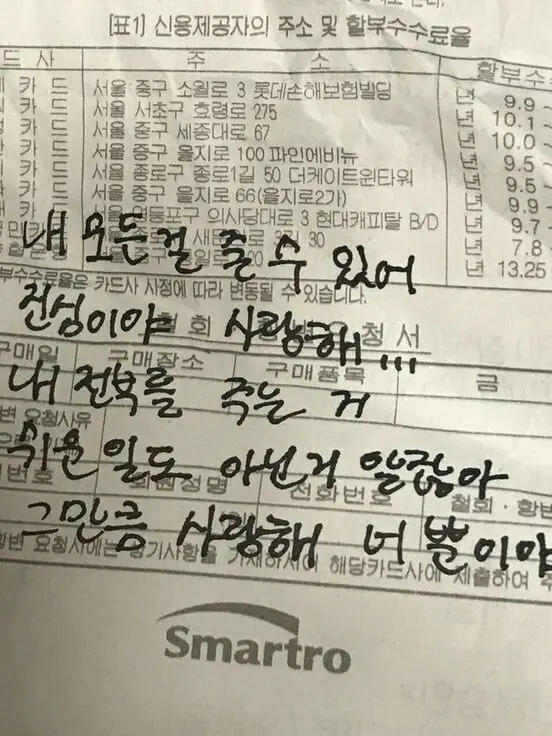 [표1] 신용제공자의 주소 및 할부수수료율
드 사 주 소 할부수
카 드 서울 중구 소월로 3 롯데손해보험빌딩 년 9.9 ~
카 드 서울 서초구 효령로 275 년 10.1 ~
카 드 서울 중구 세종대로 67 년 10.0 ~
카 드 서울 중구 을지로 100 파인에비뉴 년 9.5 ~
카 드 서울 종로구 종로1길 50 더케이트윈타워 년 9.5 ~
카 드 서울 중구 을지로 66(을지로2가) 년 9.9 ~
카 드 서울 영등포구 의사당대로 3 현대캐피탈 B/D 년 9.7 ~
30 년 7.8 ~
20 년 13.25
내 모든걸 줄 수 있어
부수수료율은 카드사 사정에 따라 변동될 수 있습니다.
진심이야 사랑해...
철 회 청 서
구매일 구매장소 구매품목 금
내 전부를 주는 거
변 요청사유
쉬운 일도 아닌거 알잖아
번호 회원성명 전화번호 철회·항변
그만큼 사랑해 너 뿐이야
항변 요청시에는 상기사항을 기재하시어 해당카드사에 제출하여 주
Smartro